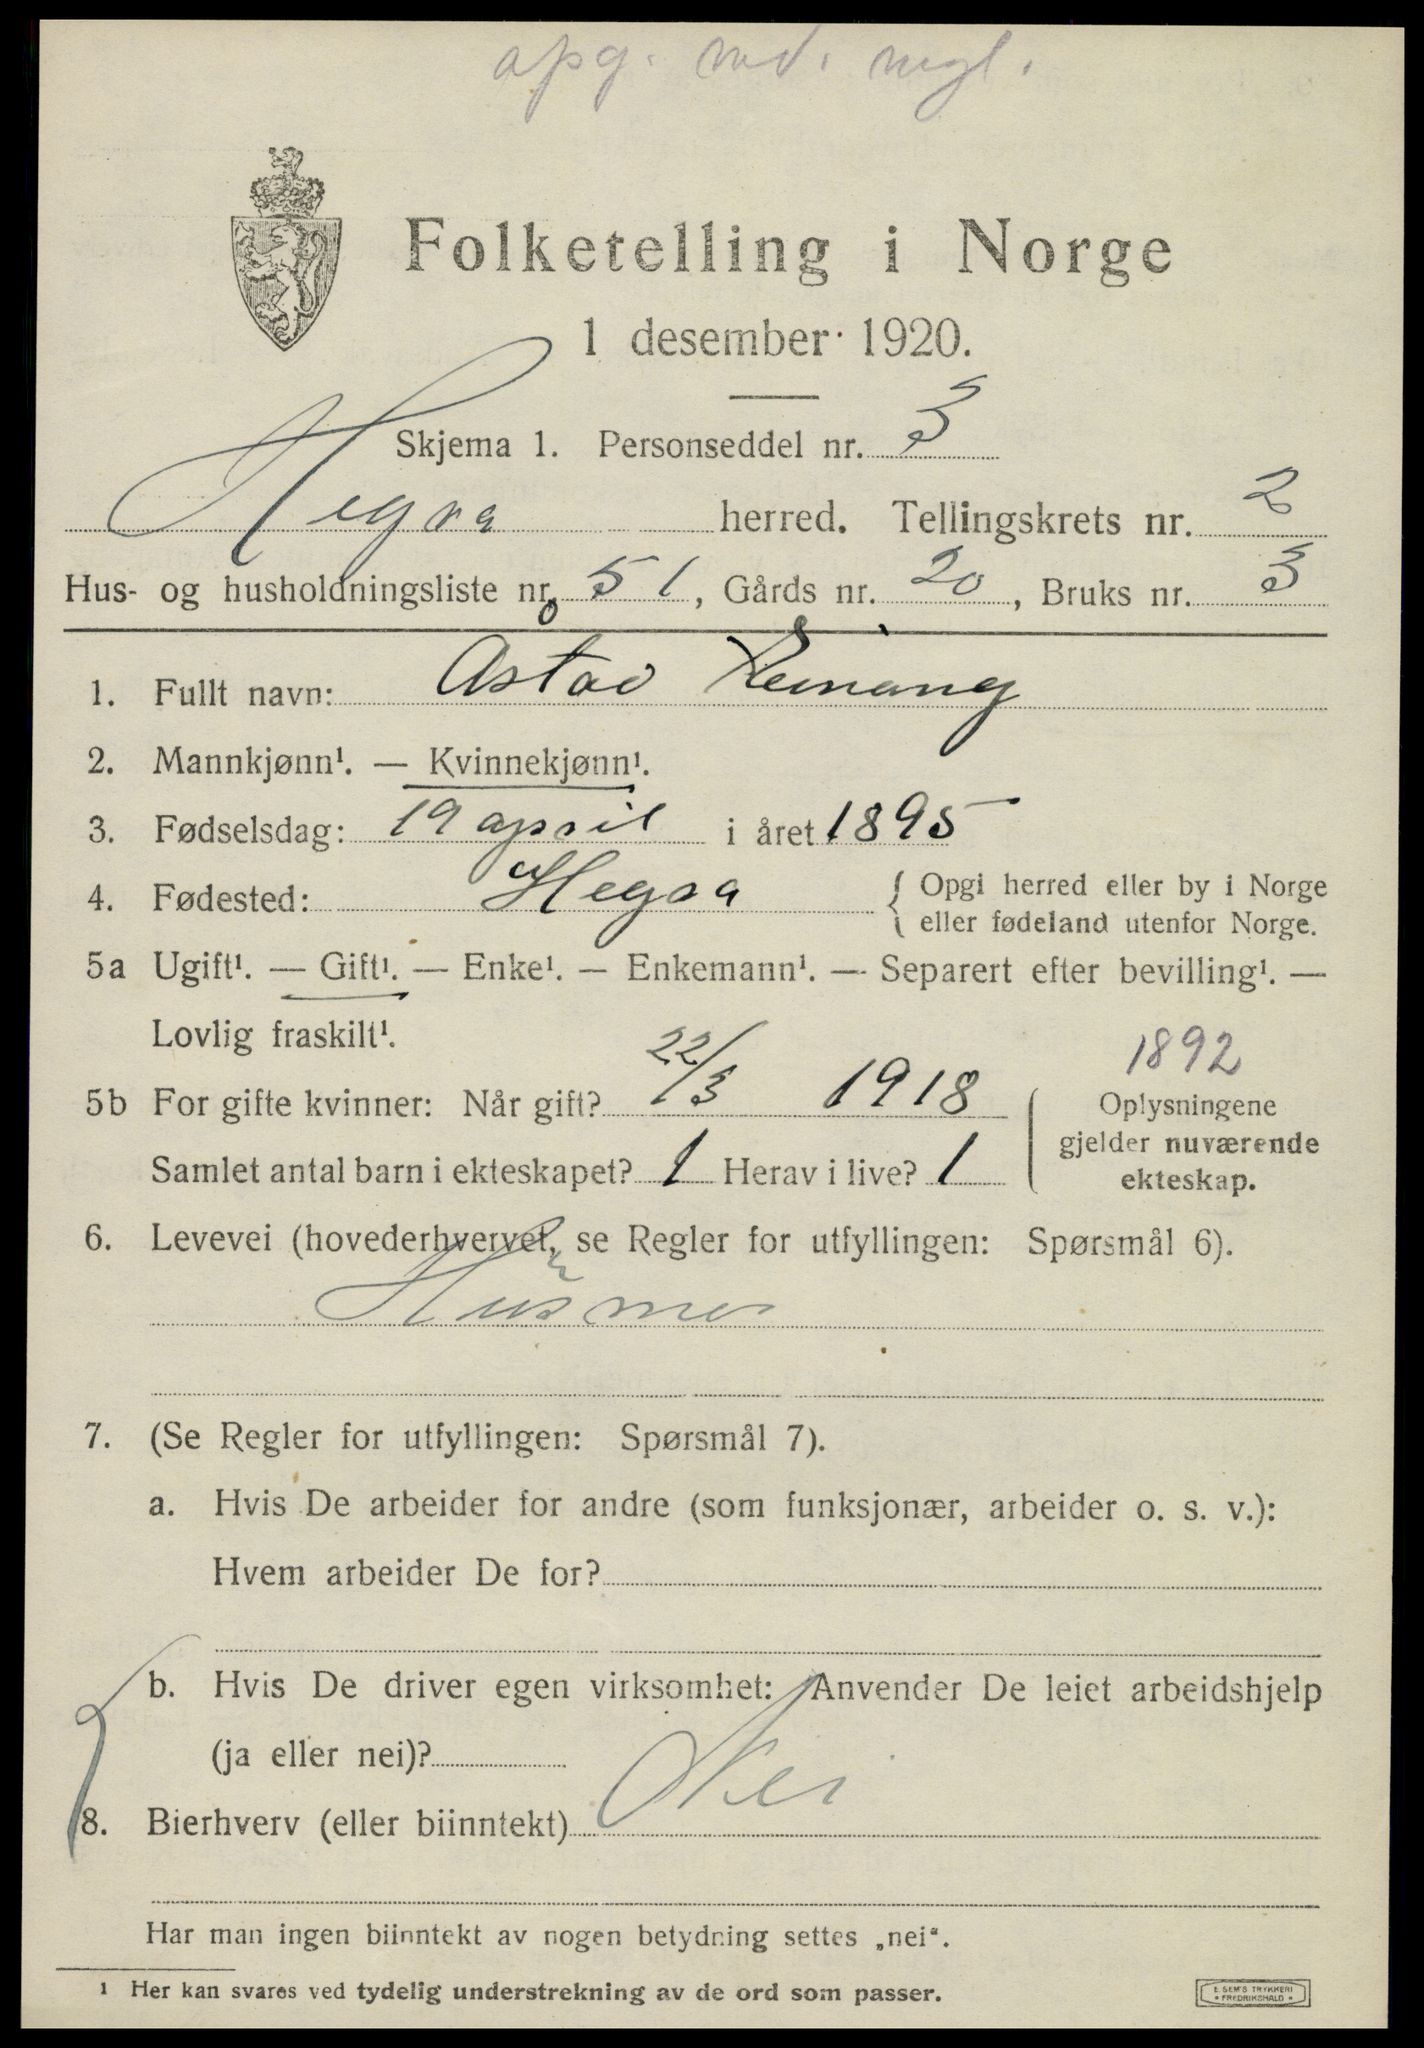 opg. md. regl.
Folketelling i Norge
1 desember 1920.
Skjema 1. Personseddel nr. 3
Hegra herred. Tellingskrets nr. 2
Hus- og husholdningsliste nr. 51, Gårds nr. 20, Bruks nr. 3
1. Fullt navn: Åstad
2. Mannkjønn¹. — Kvinnekjønn¹.
3. Fødselsdag: 19 april i året 1895
4. Fødested: Hegra { Opgi herred eller by i Norge
eller fødeland utenfor Norge.
5a Ugift¹. — Gift¹. — Enke¹. — Enkemann¹. — Separert efter bevilling¹. —
Lovlig fraskilt¹.
1892
5b For gifte kvinner: Når gift? 22/3 1918
Samlet antal barn i ekteskapet? 1 Herav i live? 1
Oplysningene
gjelder nuværende
ekteskap.
6. Levevei (hovederhvervet, se Regler for utfyllingen: Spørsmål 6).
Husmor
7. (Se Regler for utfyllingen: Spørsmål 7).
a. Hvis De arbeider for andre (som funksjonær, arbeider o. s. v.):
Hvem arbeider De for?
b. Hvis De driver egen virksomhet: Anvender De leiet arbeidshjelp
(ja eller nei)?
8. Bierhverv (eller biinntekt) Nei
Har man ingen biinntekt av nogen betydning settes „nei“.
1 Her kan svares ved tydelig understrekning av de ord som passer.
E. SEM'S TRYKKERI
• FREDRIKSHALD •